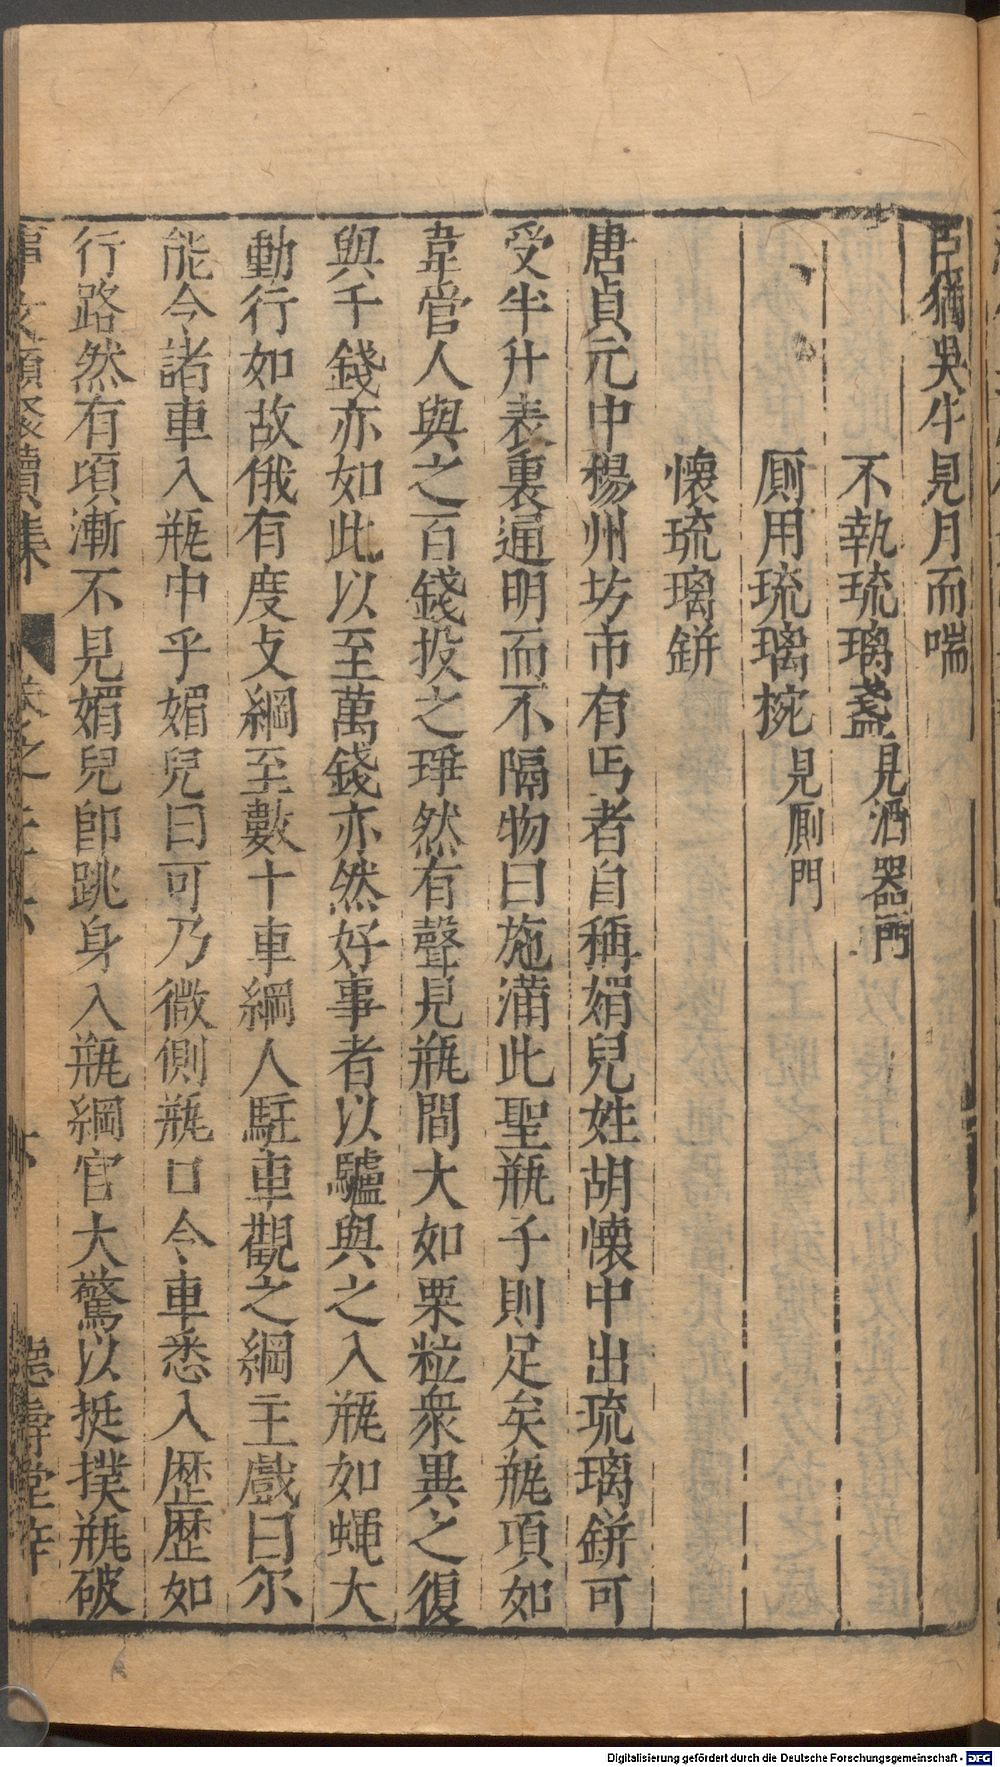 臣猶吳牛見月而喘
不執琉璃盞見酒器門
厠用琉璃椀見厠門
懷琉璃缾
唐貞元中楊州坊市有丐者自稱媚兒姓胡懷中出琉璃缾可
受半升表裏通明而不隔物曰施滿此聖瓶子則足矣瓶項如
葦管人與之百錢投之琤然有聲見瓶間大如粟粒衆異之復
與千錢亦如此以至萬錢亦然好事者以驢與之入瓶如蠅大
動行如故俄有度支綱至數十車綱人駐車觀之綱主戲曰尔
能令諸車入瓶中乎媚兒曰可乃微側瓶口令車悉入歷歷如
行路然有頃漸不見媚兒卽跳身入瓶綱官大驚以挺撲瓶破
事文類聚續集 卷之二十六 六 德壽堂梓
Digitalisierung gefördert durch die Deutsche Forschungsgemeinschaft - DFG